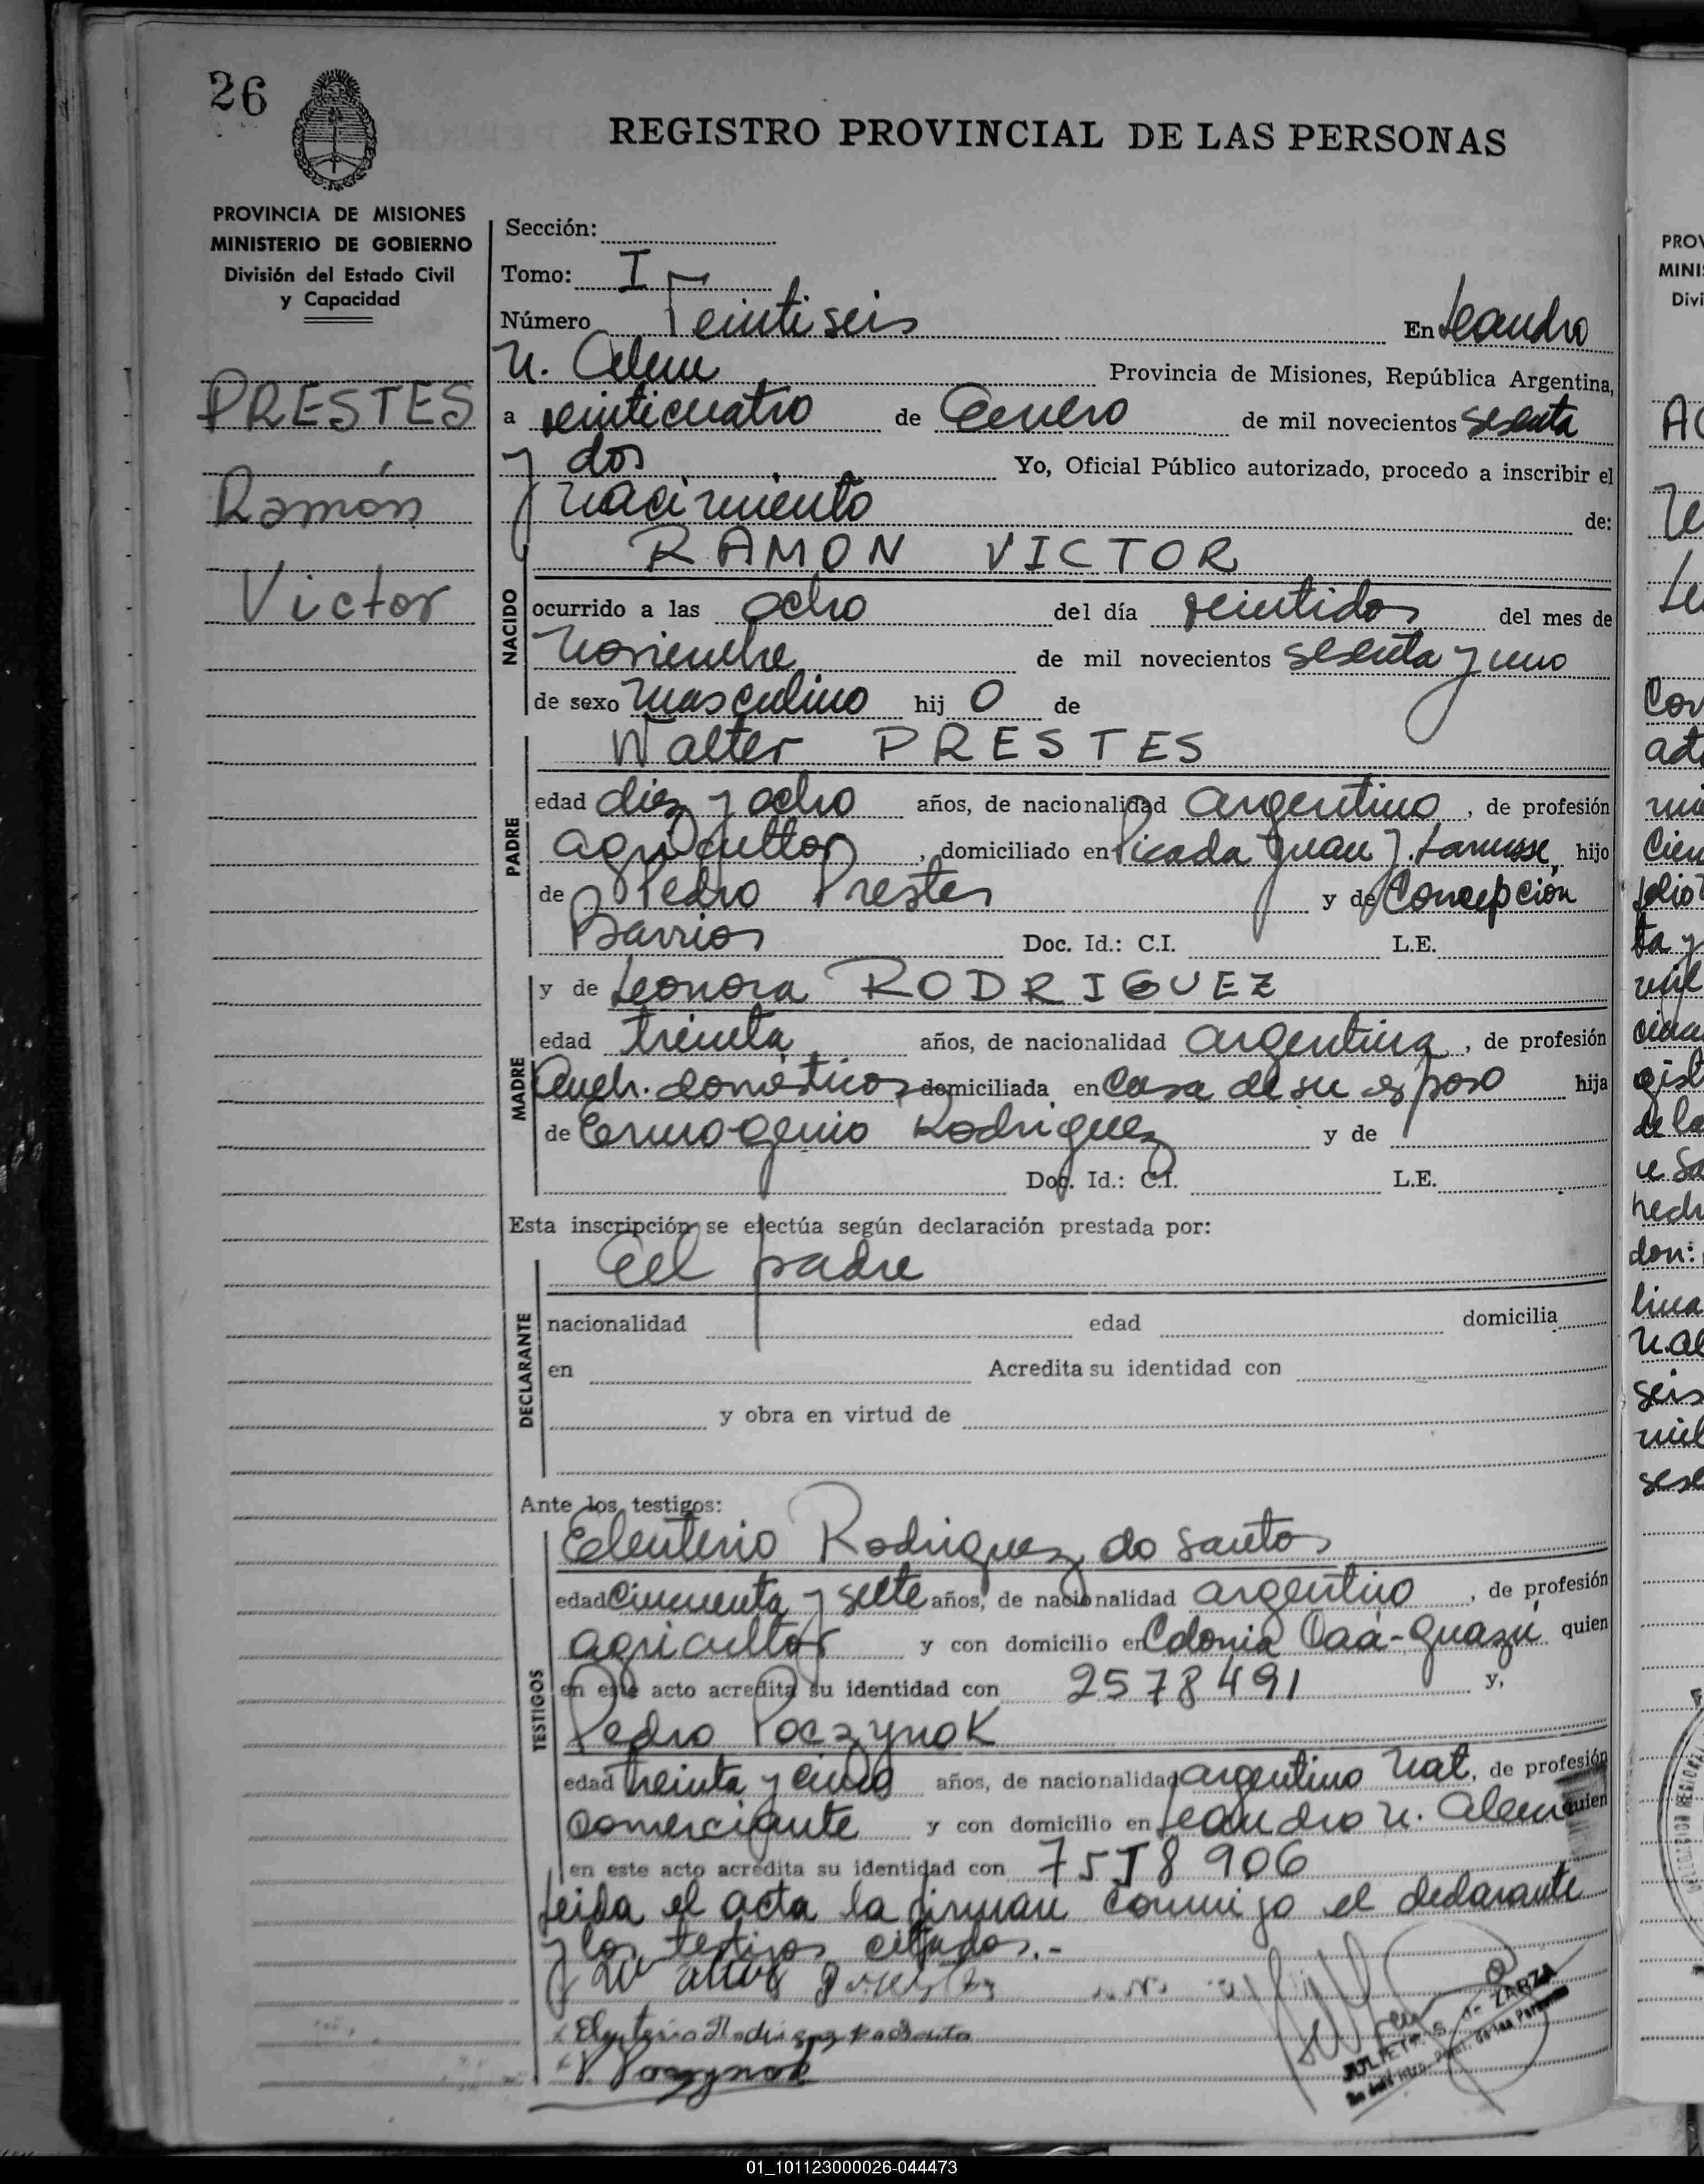 26
REGISTRO PROVINCIAL DE LAS PERSONAS
PROVINCIA DE MISIONES
MINISTERIO DE GOBIERNO
División del Estado Civil
y Capacidad
PRESTES
Ramón
Victor
Sección:
Tomo: I
Número Veintiseis En Leandro
N. Alem Provincia de Misiones, República Argentina,
a veinticuatro de Enero de mil novecientos sesenta
y dos Yo, Oficial Público autorizado, procedo a inscribir el
nacimiento de:
RAMON VICTOR
NACIDO
ocurrido a las ocho del día veintidos del mes de
Noviembre de mil novecientos sesenta y uno
de sexo masculino hij o de
Walter PRESTES
PADRE
edad diez y ocho años, de nacionalidad argentino, de profesión
agricultor, domiciliado en Picada Juan J. Lanusse, hijo
de Pedro Prestes y de Concepción
Barrios Doc. Id.: C.I. L.E.
y de Leonora RODRIGUEZ
MADRE
edad treinta años, de nacionalidad argentina, de profesión
Queh. domésticos domiciliada en Casa de su esposo hija
de Ermogenio Rodriguez y de
Doc. Id.: C.I. L.E.
Esta inscripción se efectúa según declaración prestada por:
El padre
DECLARANTE
nacionalidad edad domicilia
en Acredita su identidad con
y obra en virtud de
Ante los testigos:
Eleuterio Rodriguez do Santos
TESTIGOS
edad cincuenta y siete años, de nacionalidad argentino, de profesión
agricultor y con domicilio en Colonia Caá-Guazú quien
en este acto acredita su identidad con 2578491 y,
Pedro Poczynok
edad treinta y cinco años, de nacionalidad argentino nat, de profesión
comerciante y con domicilio en Leandro N. Alem quien
en este acto acredita su identidad con 7518906
Leida el acta la firman conmigo el declarante
y los testigos citados.-
JULIETA S. T. ZARZA